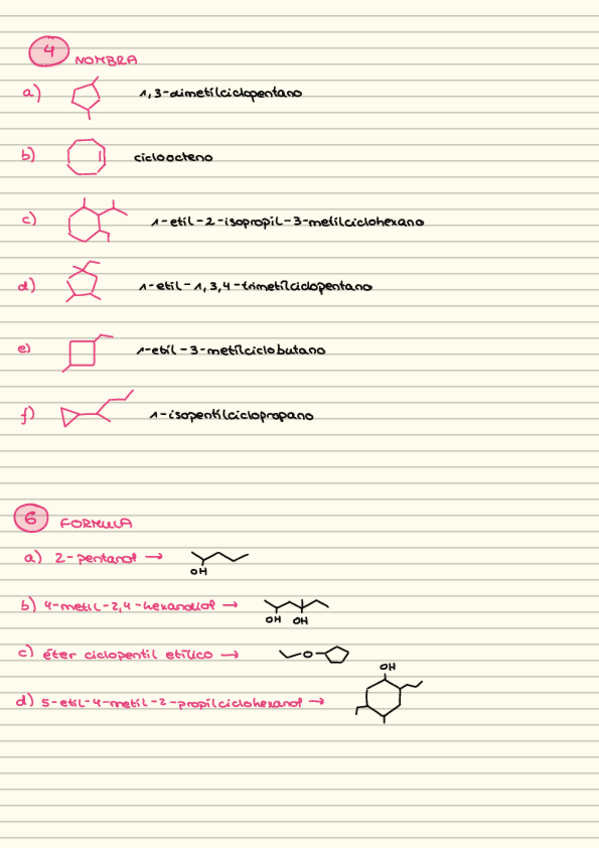 4 NOMBRA
a) 1,3-dimetilciclopentano
b) cicloocteno
c) 1-etil-2-isopropil-3-metilciclohexano
d) 1-etil-1,3,4-trimetilciclopentano
e) 1-etil-3-metilciclobutano
f) 1-isopentilciclopropano
6 FORMULA
a) 2-pentanol →
OH
b) 4-metil-2,4-hexanodiol →
OH OH
c) éter ciclopentil etílico →
O
OH
d) 5-etil-4-metil-2-propilciclohexanol →